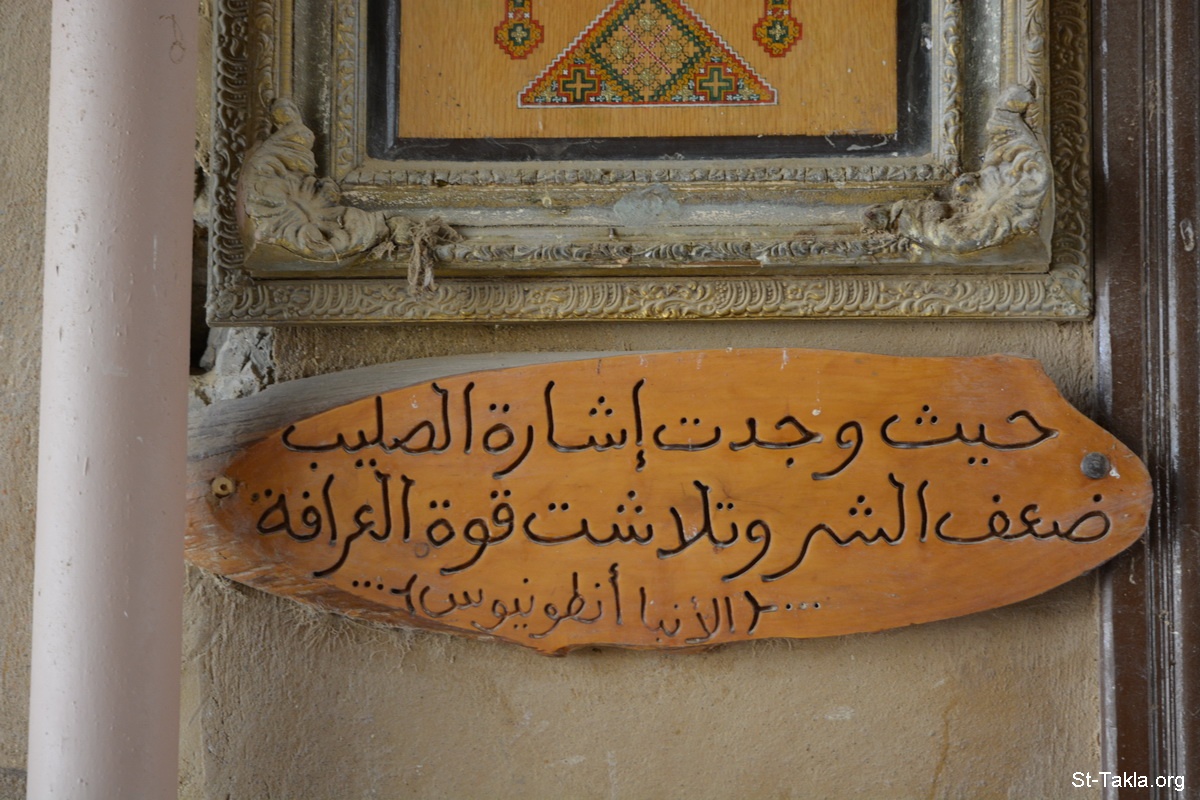 حيث وجدت إشارة الصليب
ضعف الشر وتلاشت قوة العرافة
....(الأنبا أنطونيوس)....
St-Takla.org